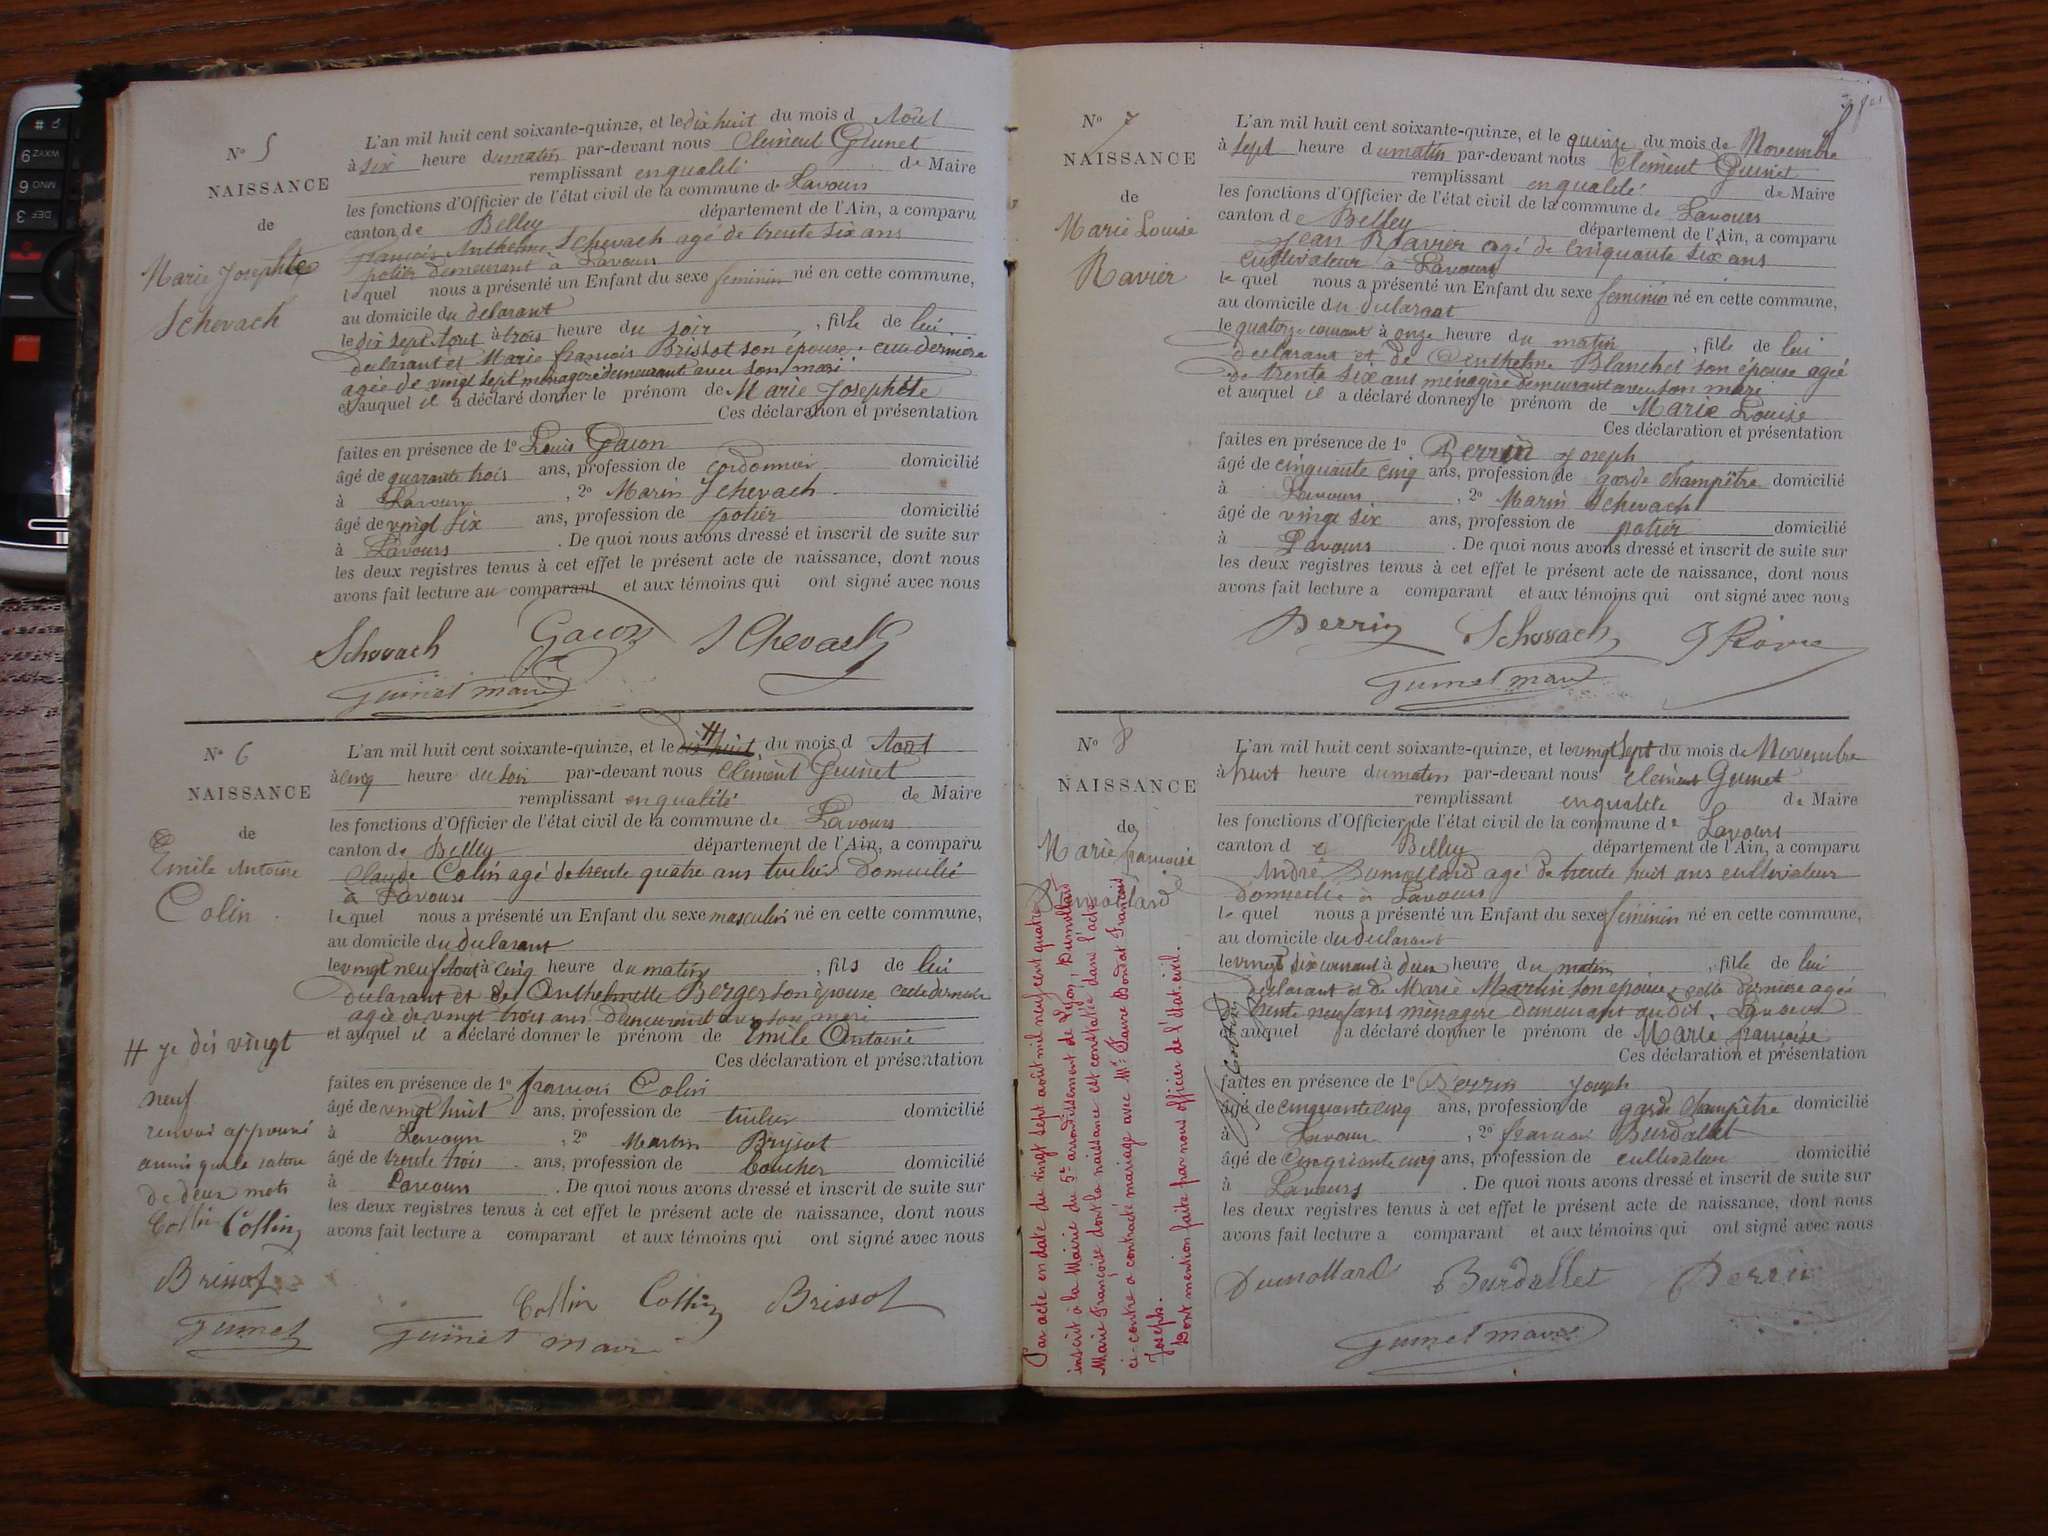 N° 5
NAISSANCE
de
Marie Josephte
Schevach
L'an mil huit cent soixante-quinze, et le dix huit du mois d Août
à six heure du matin par-devant nous Clément Guinet
remplissant en qualité de Maire
les fonctions d'Officier de l'état civil de la commune de Lavours
canton de Belley département de l'Ain, a comparu
François Anthelme Schevach agé de trente six ans
potier demeurant à Lavours
lequel nous a présenté un Enfant du sexe feminin né en cette commune,
au domicile du declarant
le dix sept Aout à trois heure du soir , fille de lui
declarant et Marie françois Brissot son épouse cette dernière
agée de vingt sept ménagère demeurant avec son mari
et auquel il a déclaré donner le prénom de Marie Josephte
Ces déclaration et présentation
faites en présence de 1° Louis Gacon
âgé de quarante trois ans, profession de cordonnier domicilié
à Lavours , 2° Marin Schevach
âgé de vingt six ans, profession de potier domicilié
à Lavours . De quoi nous avons dressé et inscrit de suite sur
les deux registres tenus à cet effet le présent acte de naissance, dont nous
avons fait lecture au comparant et aux témoins qui ont signé avec nous
Schevach Gacon SChevach
Guinet maire
N° 6
NAISSANCE
de
Emile Antoine
Colin
L'an mil huit cent soixante-quinze, et le dix huit H du mois d Aout
à cinq heure du soir par-devant nous Clément Guinet
remplissant en qualité de Maire
les fonctions d'Officier de l'état civil de la commune de Lavours
canton de Belley département de l'Ain, a comparu
Claude Colin agé de trente quatre ans tuilier domicilié
à Lavours
lequel nous a présenté un Enfant du sexe masculin né en cette commune,
au domicile du declarant
le vingt neuf Aout à cinq heure du matin , fils de lui
declarant et de Anthelmette Berger son épouse cette dernière
agée de vingt trois ans demeurant avec son mari
et auquel il a déclaré donner le prénom de Emile Antoine
Ces déclaration et présentation
faites en présence de 1° françois Colin
âgé de vingt huit ans, profession de tuilier domicilié
à Lavours , 2° Martin Brissot
âgé de trente trois ans, profession de boucher domicilié
à Lavours . De quoi nous avons dressé et inscrit de suite sur
les deux registres tenus à cet effet le présent acte de naissance, dont nous
avons fait lecture a comparant et aux témoins qui ont signé avec nous
H je dis vingt
neuf
renvoi approuvé
ainsi que la rature
de deux mots
Collin Collin
Brissot
Guinet
Collin Collin Brissot
Guinet maire
N° 7
NAISSANCE
de
Marie Louise
Ravier
L'an mil huit cent soixante-quinze, et le quinze du mois de Novembre
à sept heure du matin par-devant nous Clément Guinet
remplissant en qualité de Maire
les fonctions d'Officier de l'état civil de la commune de Lavours
canton de Belley département de l'Ain, a comparu
Jean Ravier agé de cinquante six ans
cultivateur à Lavours
lequel nous a présenté un Enfant du sexe feminin né en cette commune,
au domicile du declarant
le quatorze courant à onze heure du matin , fille de lui
declarant et de Anthelme Blanchet son épouse agée
de trente six ans menagère demeurant avec son mari
et auquel il a déclaré donner le prénom de Marie Louise
Ces déclaration et présentation
faites en présence de 1° Perrin Joseph
âgé de cinquante cinq ans, profession de garde champêtre domicilié
à Lavours , 2° Marin Schevach
âgé de vingt six ans, profession de potier domicilié
à Lavours . De quoi nous avons dressé et inscrit de suite sur
les deux registres tenus à cet effet le présent acte de naissance, dont nous
avons fait lecture a comparant et aux témoins qui ont signé avec nous
Perrin Schevach
Guinet maire
N° 8
NAISSANCE
de
Marie françoise
Dumollard
L'an mil huit cent soixante-quinze, et le vingt sept du mois de Novembre
à huit heure du matin par-devant nous Clément Guinet
remplissant en qualité de Maire
les fonctions d'Officier de l'état civil de la commune de Lavours
canton de Belley département de l'Ain, a comparu
André Dumollard agé de trente huit ans cultivateur
domicilié à Lavours
lequel nous a présenté un Enfant du sexe feminin né en cette commune,
au domicile du declarant
le vingt six courant à deux heure du matin , fille de lui
declarant et de Marie Martin son épouse, cette dernière agée
de trente neuf ans ménagère demeurant au dit Lavours
et auquel a déclaré donner le prénom de Marie françoise
Ces déclaration et présentation
faites en présence de 1° Perrin Joseph
âgé de cinquante cinq ans, profession de garde champêtre domicilié
à Lavours , 2° françois Burdallet
âgé de cinquante cinq ans, profession de cultivateur domicilié
à Lavours . De quoi nous avons dressé et inscrit de suite sur
les deux registres tenus à cet effet le présent acte de naissance, dont nous
avons fait lecture a comparant et aux témoins qui ont signé avec nous
Dumollard Burdallet Perrin
Guinet maire
Par acte en date du vingt sept août mil neuf cent quatre
inscrit à la Mairie du 5e arrondissement de Lyon, Dumollard
Marie Françoise dont la naissance est constatée dans l'acte
ci-contre a contracté mariage avec Mr Favre Bondat François
Joseph.
Dont mention faite par nous officier de l'état civil.